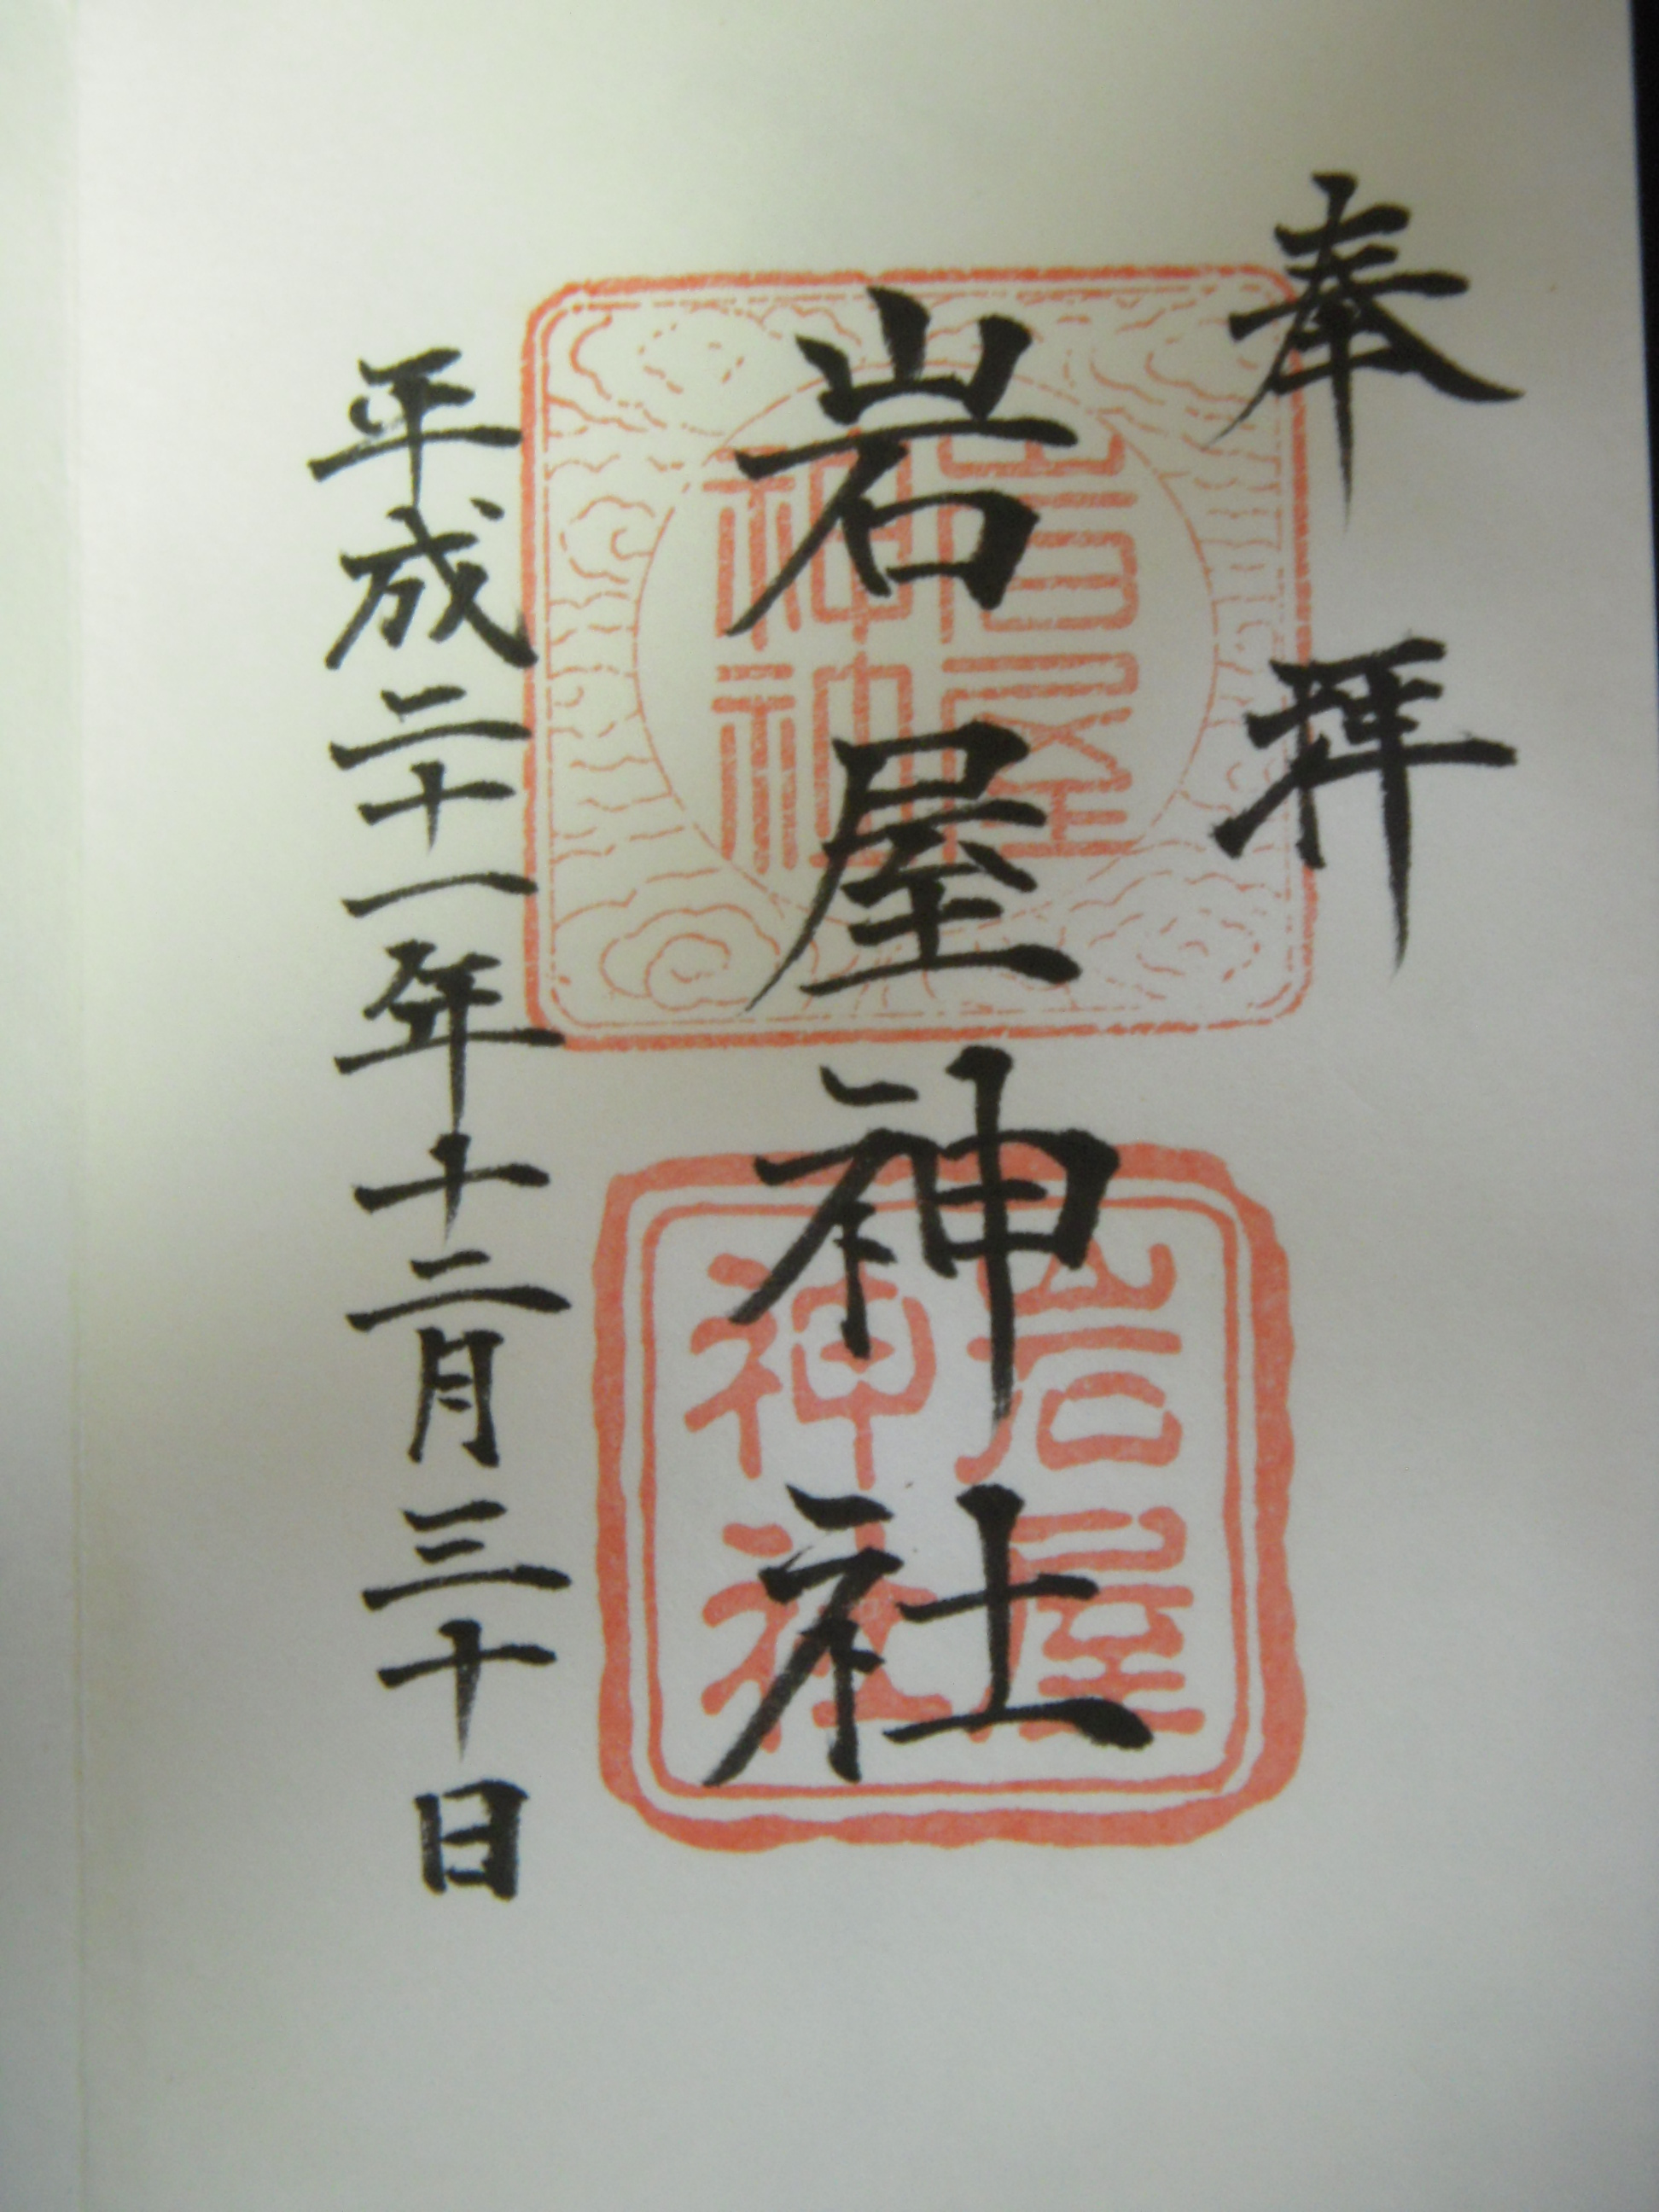 奉拝
岩屋神社
平成二十一年十二月三十日
岩屋
神社